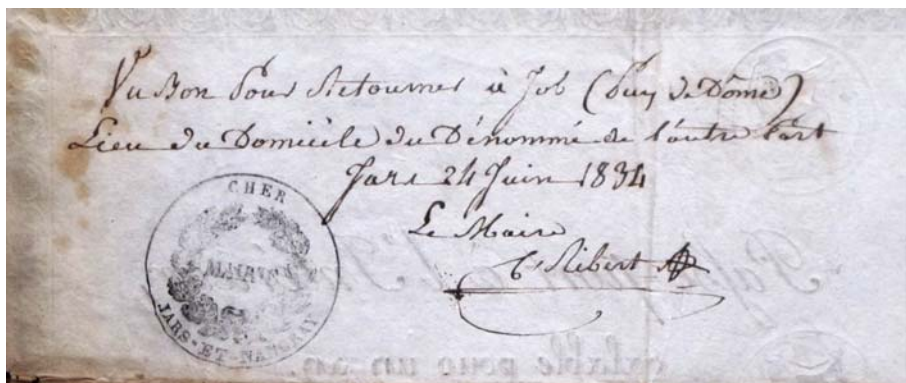 Vu Bon Pour Retourner à Job (Puy de Dôme)
Lieu du Domicile du Dénommé de l'autre Part
Jars 24 Juin 1834
Le Maire
Ribert
CHER
MAIRIE
JARS-ET-NANÇAY
valable pour un an.